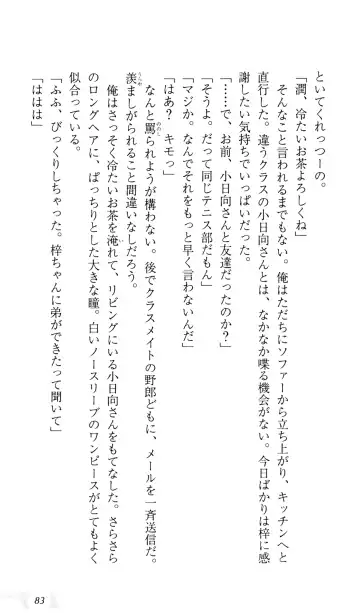 といてくれっつーの。
「潤、冷たいお茶よろしくね」
そんなこと言われるまでもない。俺はただちにソファーから立ち上がり、キッチンへと
直行した。違うクラスの小日向さんとは、なかなか喋る機会がない。今日ばかりは梓に感
謝したい気持ちでいっぱいだった。
「……で、お前、小日向さんと友達だったのか?」
「そうよ。だって同じテニス部だもん」
「マジか。なんでそれをもっと早く言わないんだ」
「はあ? キモっ」
なんと罵られようが構わない。後でクラスメイトの野郎どもに、メールを一斉送信だ。
羨ましがられること間違いなしだろう。
俺はさっそく冷たいお茶を淹れて、リビングにいる小日向さんをもてなした。さらさら
のロングヘアに、ぱっちりとした大きな瞳。白いノースリーブのワンピースがとてもよく
似合っている。
「ふふ、びっくりしちゃった。梓ちゃんに弟ができたって聞いて」
「ははは」
83